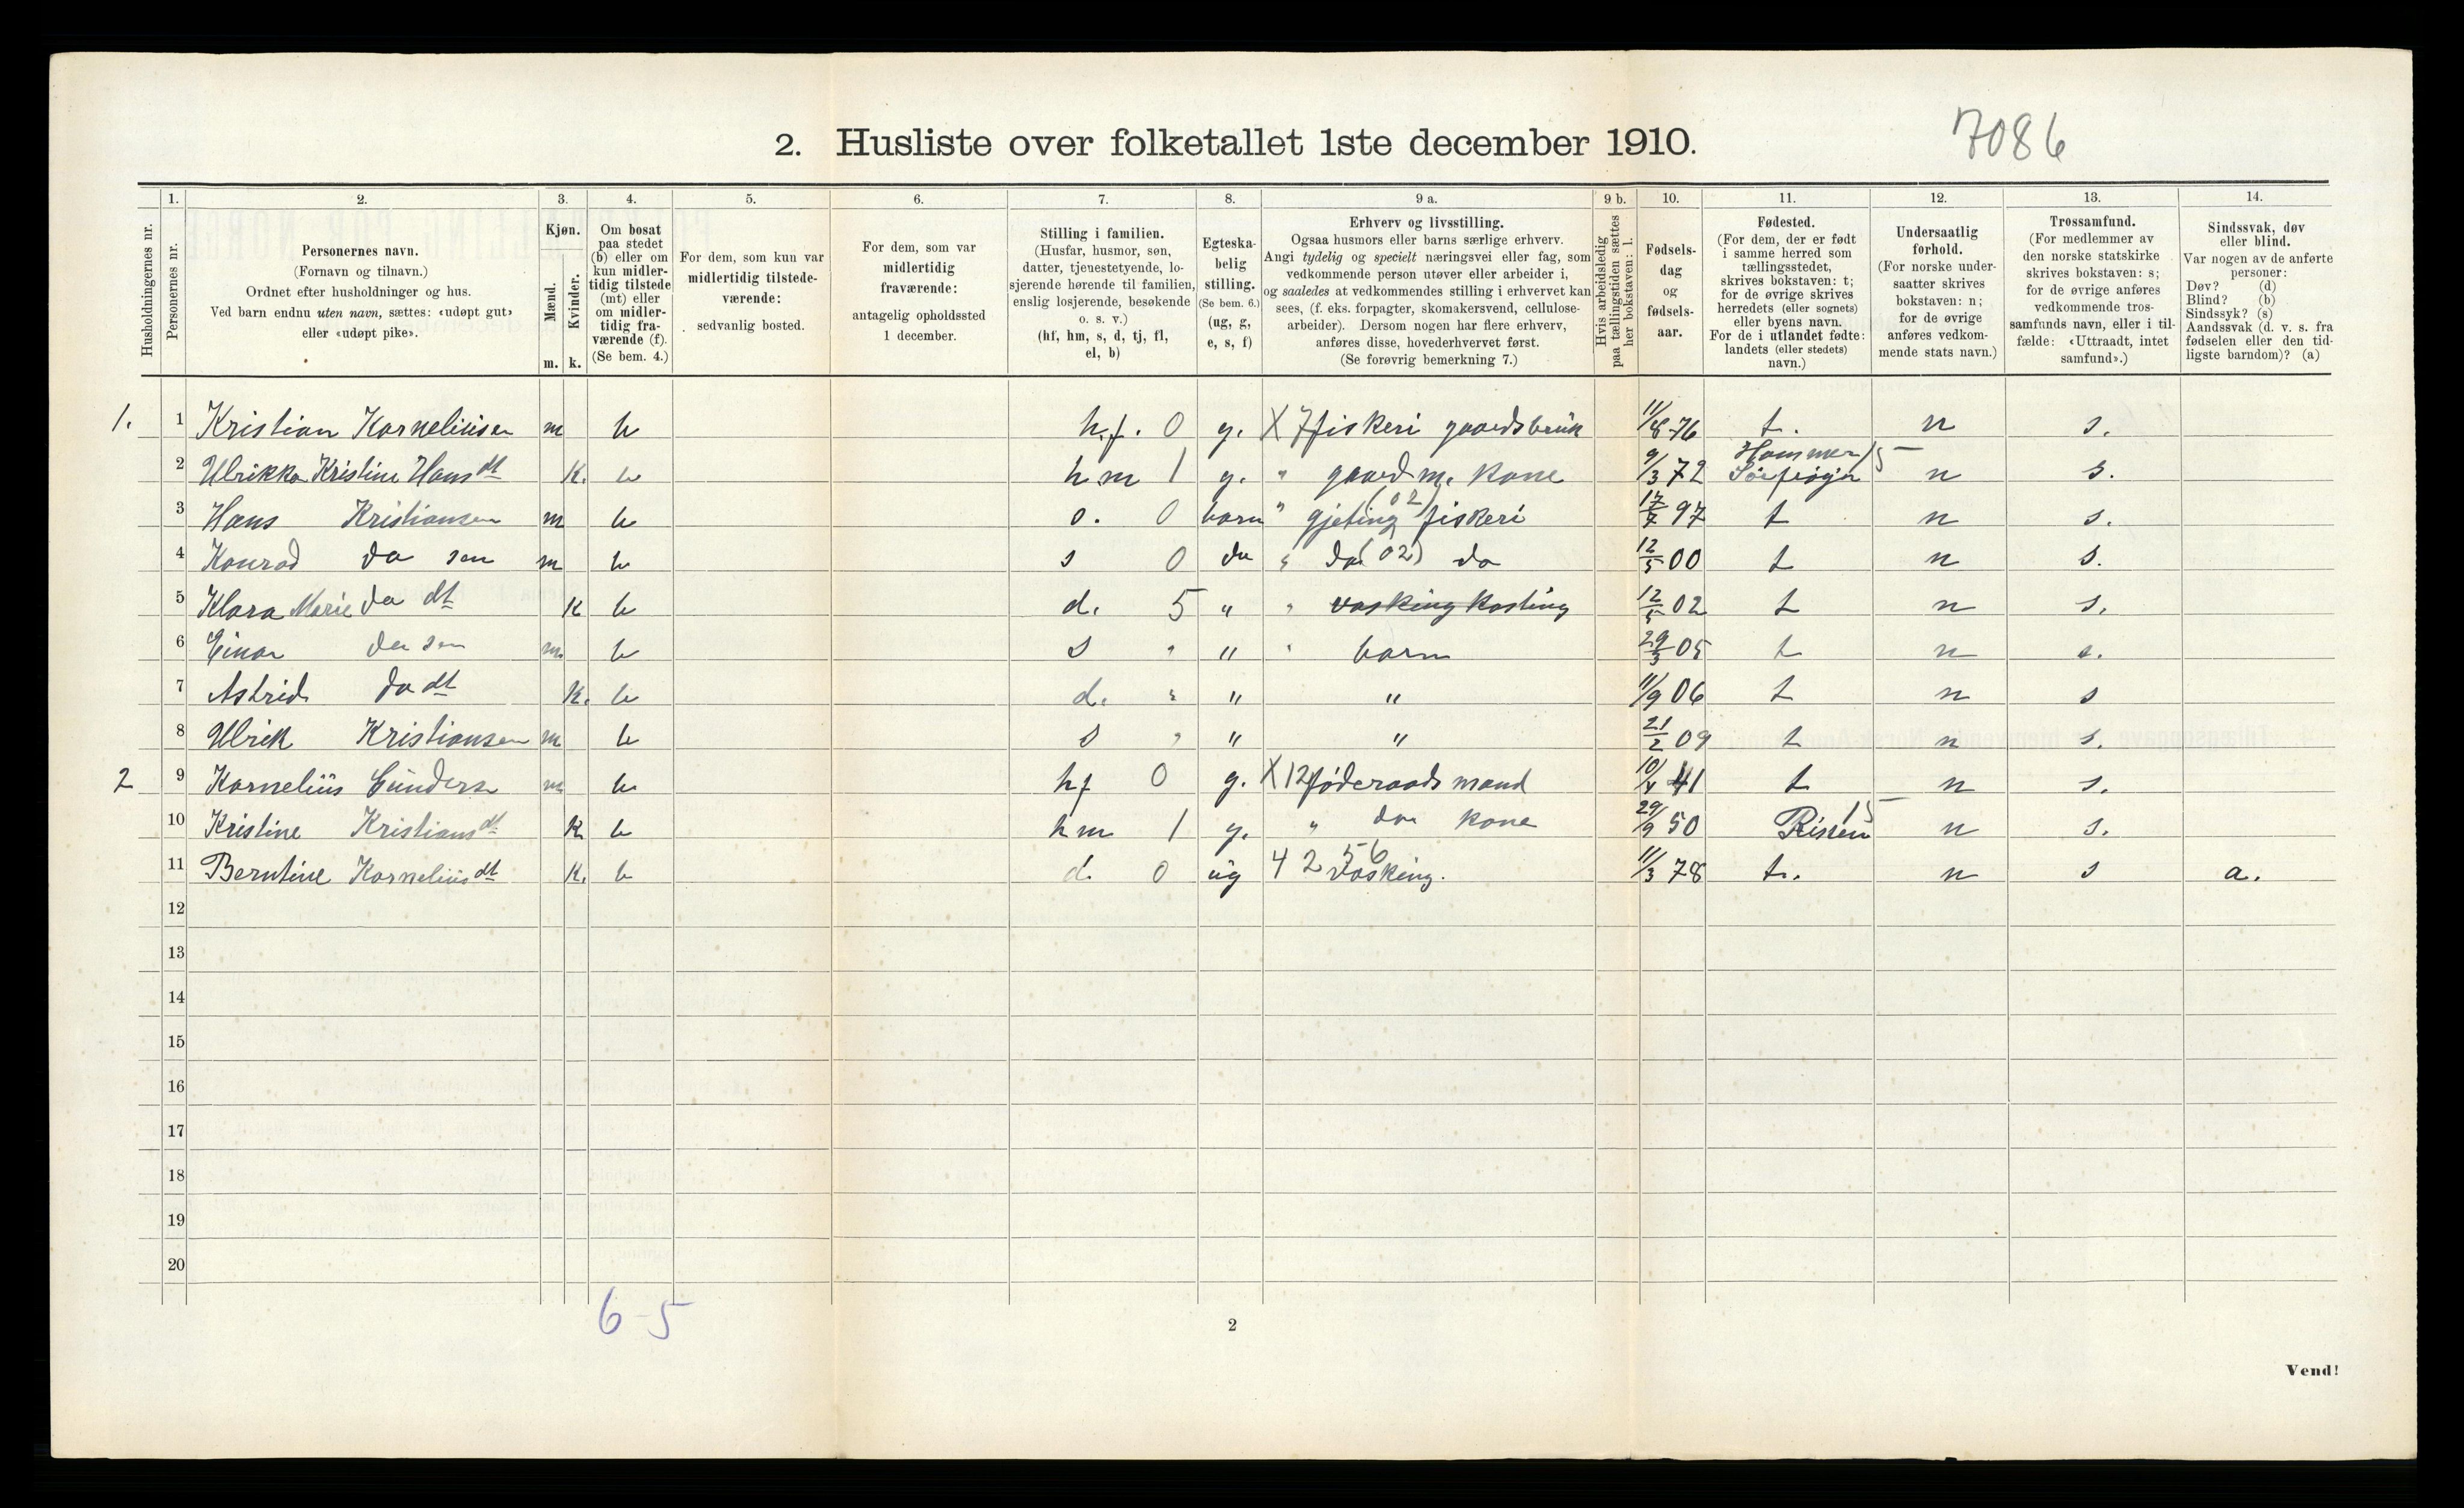 7086
2. Husliste over folketallet 1ste december 1910.
Husholdningernes nr.
1. Personernes nr.
2. Personernes navn.
(Fornavn og tilnavn.)
Ordnet efter husholdninger og hus.
Ved barn endnu uten navn, sættes: «udøpt gut»
eller «udøpt pike».
3. Kjøn.
Mænd. Kvinder.
m. k.
4. Om bosat
paa stedet
(b) eller om
kun midler-
tidig tilstede
(mt) eller
om midler-
tidig fra-
værende (f).
(Se bem. 4.)
5. For dem, som kun var
midlertidig tilstede-
værende:
sedvanlig bosted.
6. For dem, som var
midlertidig
fraværende:
antagelig opholdssted
1 december.
7. Stilling i familien.
(Husfar, husmor, søn,
datter, tjenestetyende, lo-
sjerende hørende til familien,
enslig losjerende, besøkende
o. s. v.)
(hf, hm, s, d, tj, fl,
el, b)
8. Egteska-
belig
stilling.
(Se bem. 6.)
(ug, g,
e, s, f)
9 a. Erhverv og livsstilling.
Ogsaa husmors eller barns særlige erhverv.
Angi tydelig og specielt næringsvei eller fag, som
vedkommende person utøver eller arbeider i,
og saaledes at vedkommendes stilling i erhvervet kan
sees, (f. eks. forpagter, skomakersvend, cellulose-
arbeider). Dersom nogen har flere erhverv,
anføres disse, hovederhvervet først.
(Se forøvrig bemerkning 7.)
9 b. Hvis arbeidsledig
paa tællingstiden sættes
her bokstaven: l.
10. Fødsels-
dag
og
fødsels-
aar.
11. Fødested.
(For dem, der er født
i samme herred som
tællingsstedet,
skrives bokstaven: t;
for de øvrige skrives
herredets (eller sognets)
eller byens navn.
For de i utlandet fødte:
landets (eller stedets)
navn.)
12. Undersaatlig
forhold.
(For norske under-
saatter skrives
bokstaven: n;
for de øvrige
anføres vedkom-
mende stats navn.)
13. Trossamfund.
(For medlemmer av
den norske statskirke
skrives bokstaven: s;
for de øvrige anføres
vedkommende tros-
samfunds navn, eller i til-
fælde: «Uttraadt, intet
samfund».)
14. Sindssvak, døv
eller blind.
Var nogen av de anførte
personer:
Døv? (d)
Blind? (b)
Sindssyk? (s)
Aandssvak (d. v. s. fra
fødselen eller den tid-
ligste barndom)? (a)
1. 1 Kristian Korneliusen m b h.f. 0 g. X 7 fiskeri gaardsbruk 11/8 76 t. n s.
2 Ulrikka Kristine Hansdt k. b hm 1 g. " gaardm. kone 9/3 72 Hammer 15 n s.
3 Hans Kristiansen m b s. 0 barn " gjeting (02) fiskeri 17/7 97 t n s.
4 Konrad do sen m b s 0 do " do (02) do 12/5 00 t n s.
5 Klara Marie do dt k b d. 5 " " vasking kosting 12/5 02 t n s.
6 Einar do sen m. b s " " " barn 29/3 05 t n s.
7 Astrid do dt k. b d. " " " 11/9 06 t n s
8 Ulrik Kristiansen m b s " " " 21/2 09 t n s.
2 9 Kornelius Gunderse m b. hf 0 g. X 12 føderaadsmand 10/4 41 t n s.
10 Kristine Kristiansdt k b hm 1 g. " do kone 29/9 50 Rissen 15 n s.
11 Berntine Korneliusdt k. b d. 0 ug 42 56 vasking. 11/3 78 t. n s a.
12
13
14
15
16
17
18
19
20
6-5
2
Vend!